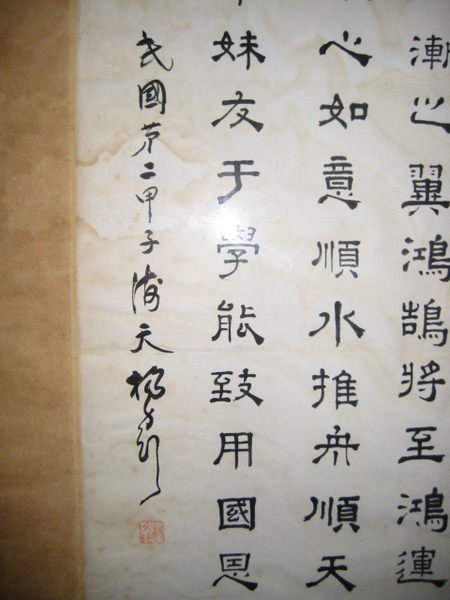 漸之翼鴻鵠將至鴻運
心如意順水推舟順天
妹友于學能致用國恩
民國第二甲子